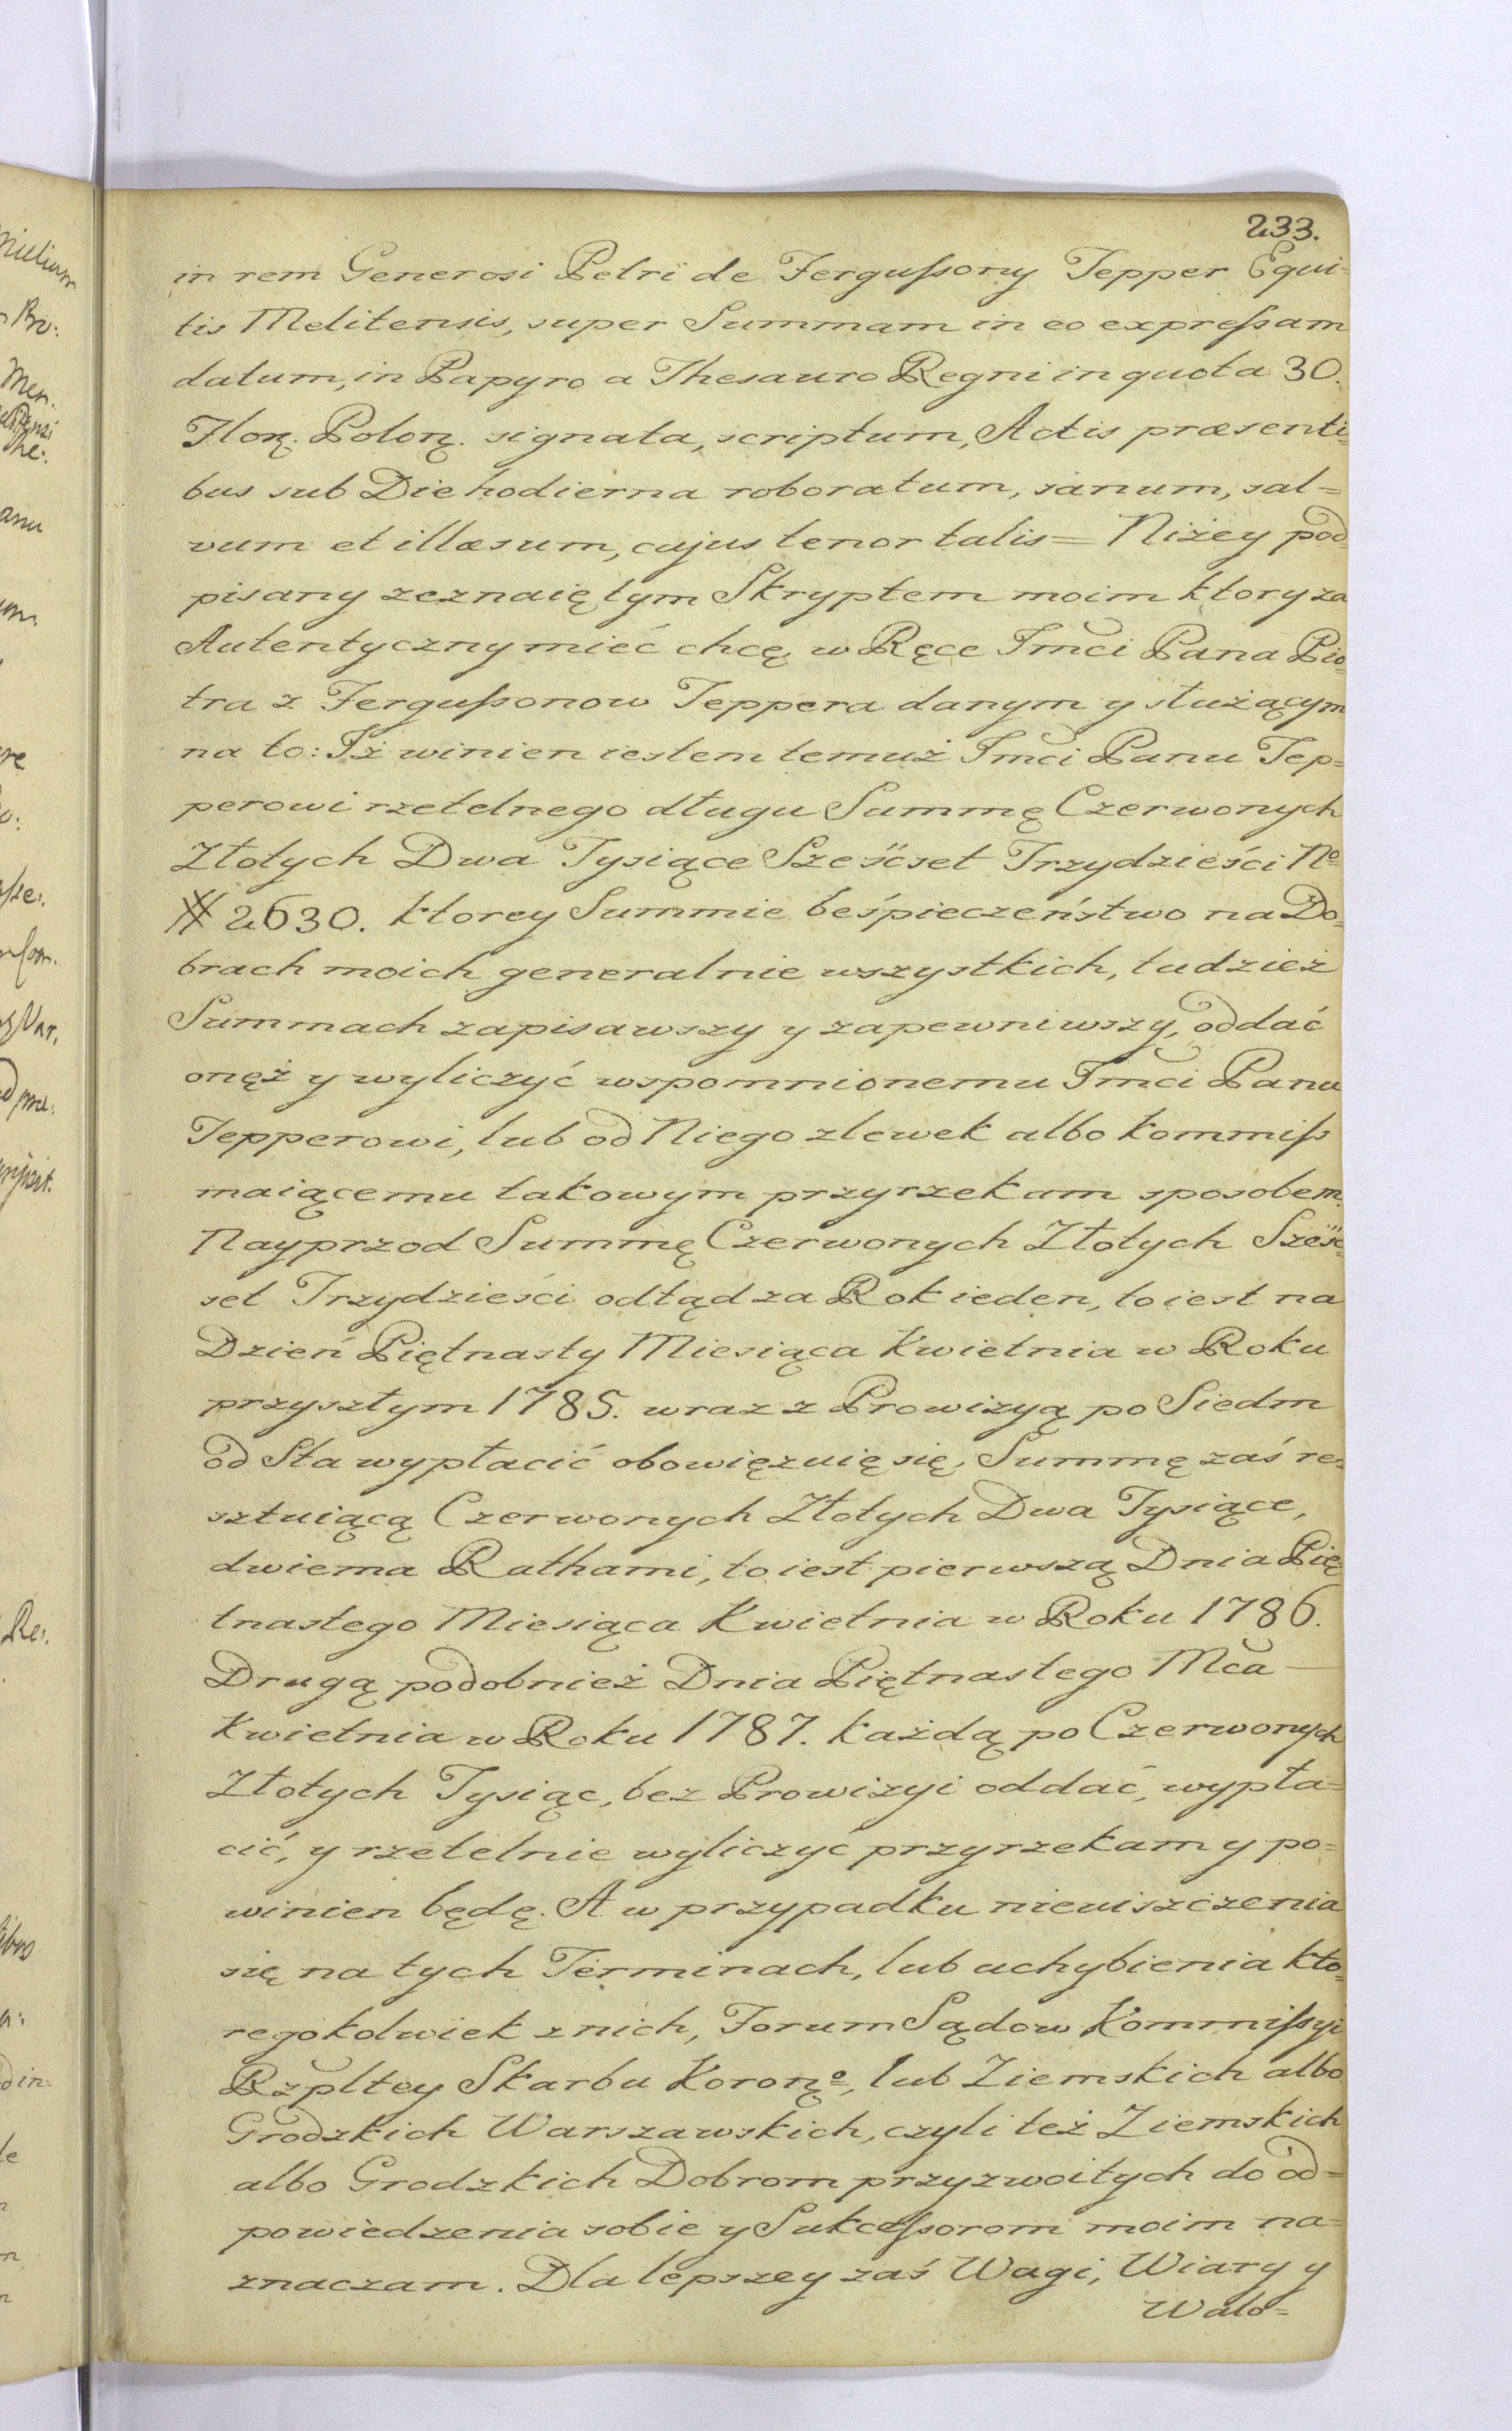 233.
in rem Generosi Petri de Fergufsony Tepper Equi=
tis Melitensis, super Summam in eo exprefsam
datum, in Papyro a Thesauro Regni in quota 30.
Flor. Polon. signata, scriptum, Actis præsenti=
bus sub Die hodierna roboratum, sanum, sal=
vum et illæsum, cujus tenor talis = Niżey pod=
pisany zeznaię tym Skryptem moim ktory za
Autentyczny mieć chcę, w Ręce Jmci Pana Pio=
tra z Fergufsonow Teppera danym y służącym
na to: Iż winien iestem temuż Jmci Panu Tep=
perowi rzetelnego długu Summę Czerwonych
Złotych Dwa Tysiące Sześćset Trzydzieści No
# 2630. ktorey Summie beśpieczeństwo na Do=
brach moich generalnie wszystkich, tudzież
Summach zapisawszy y zapewniwszy, oddać
onęż y wyliczyć wspomnionemu Jmci Panu
Tepperowi, lub od Niego zlewek albo kommifs
maiącemu takowym przyrzekam sposobem.
Nayprzod Summę Czerwonych Złotych Sześć=
set Trzydzieści odtąd za Rok ieden, to iest na
Dzień Piętnasty Miesiąca Kwietnia w Roku
przyszłym 1785. wraz z Prowizyą po Siedm
od Sta wypłacić obowięzuię się, Summę zaś re=
sztuiącą Czerwonych Złotych Dwa Tysiące,
dwiema Rathami, to iest pierwszą Dnia Pię=
tnastego Miesiąca Kwietnia w Roku 1786.
Drugą podobnież Dnia Piętnastego Mca —
Kwietnia w Roku 1787. każdą po Czerwonych
Złotych Tysiąc, bez Prowizyi oddać, wypła=
cić, y rzetelnie wyliczyć przyrzekam y po=
winien będę. A w przypadku nieuiszczenia
się na tych Terminach, lub uchybienia kto=
regokolwiek z nich, Forum Sądow Kommifsyi
Rzpltey Skarbu Koronno, lub Ziemskich albo
Grodzkich Warszawskich, czyli też Ziemskich
albo Grodzkich Dobrom przyzwoitych do od=
powiedzenia sobie y Sukcefsorom moim na=
znaczam. Dla lepszey zaś Wagi, Wiary y
Walo=